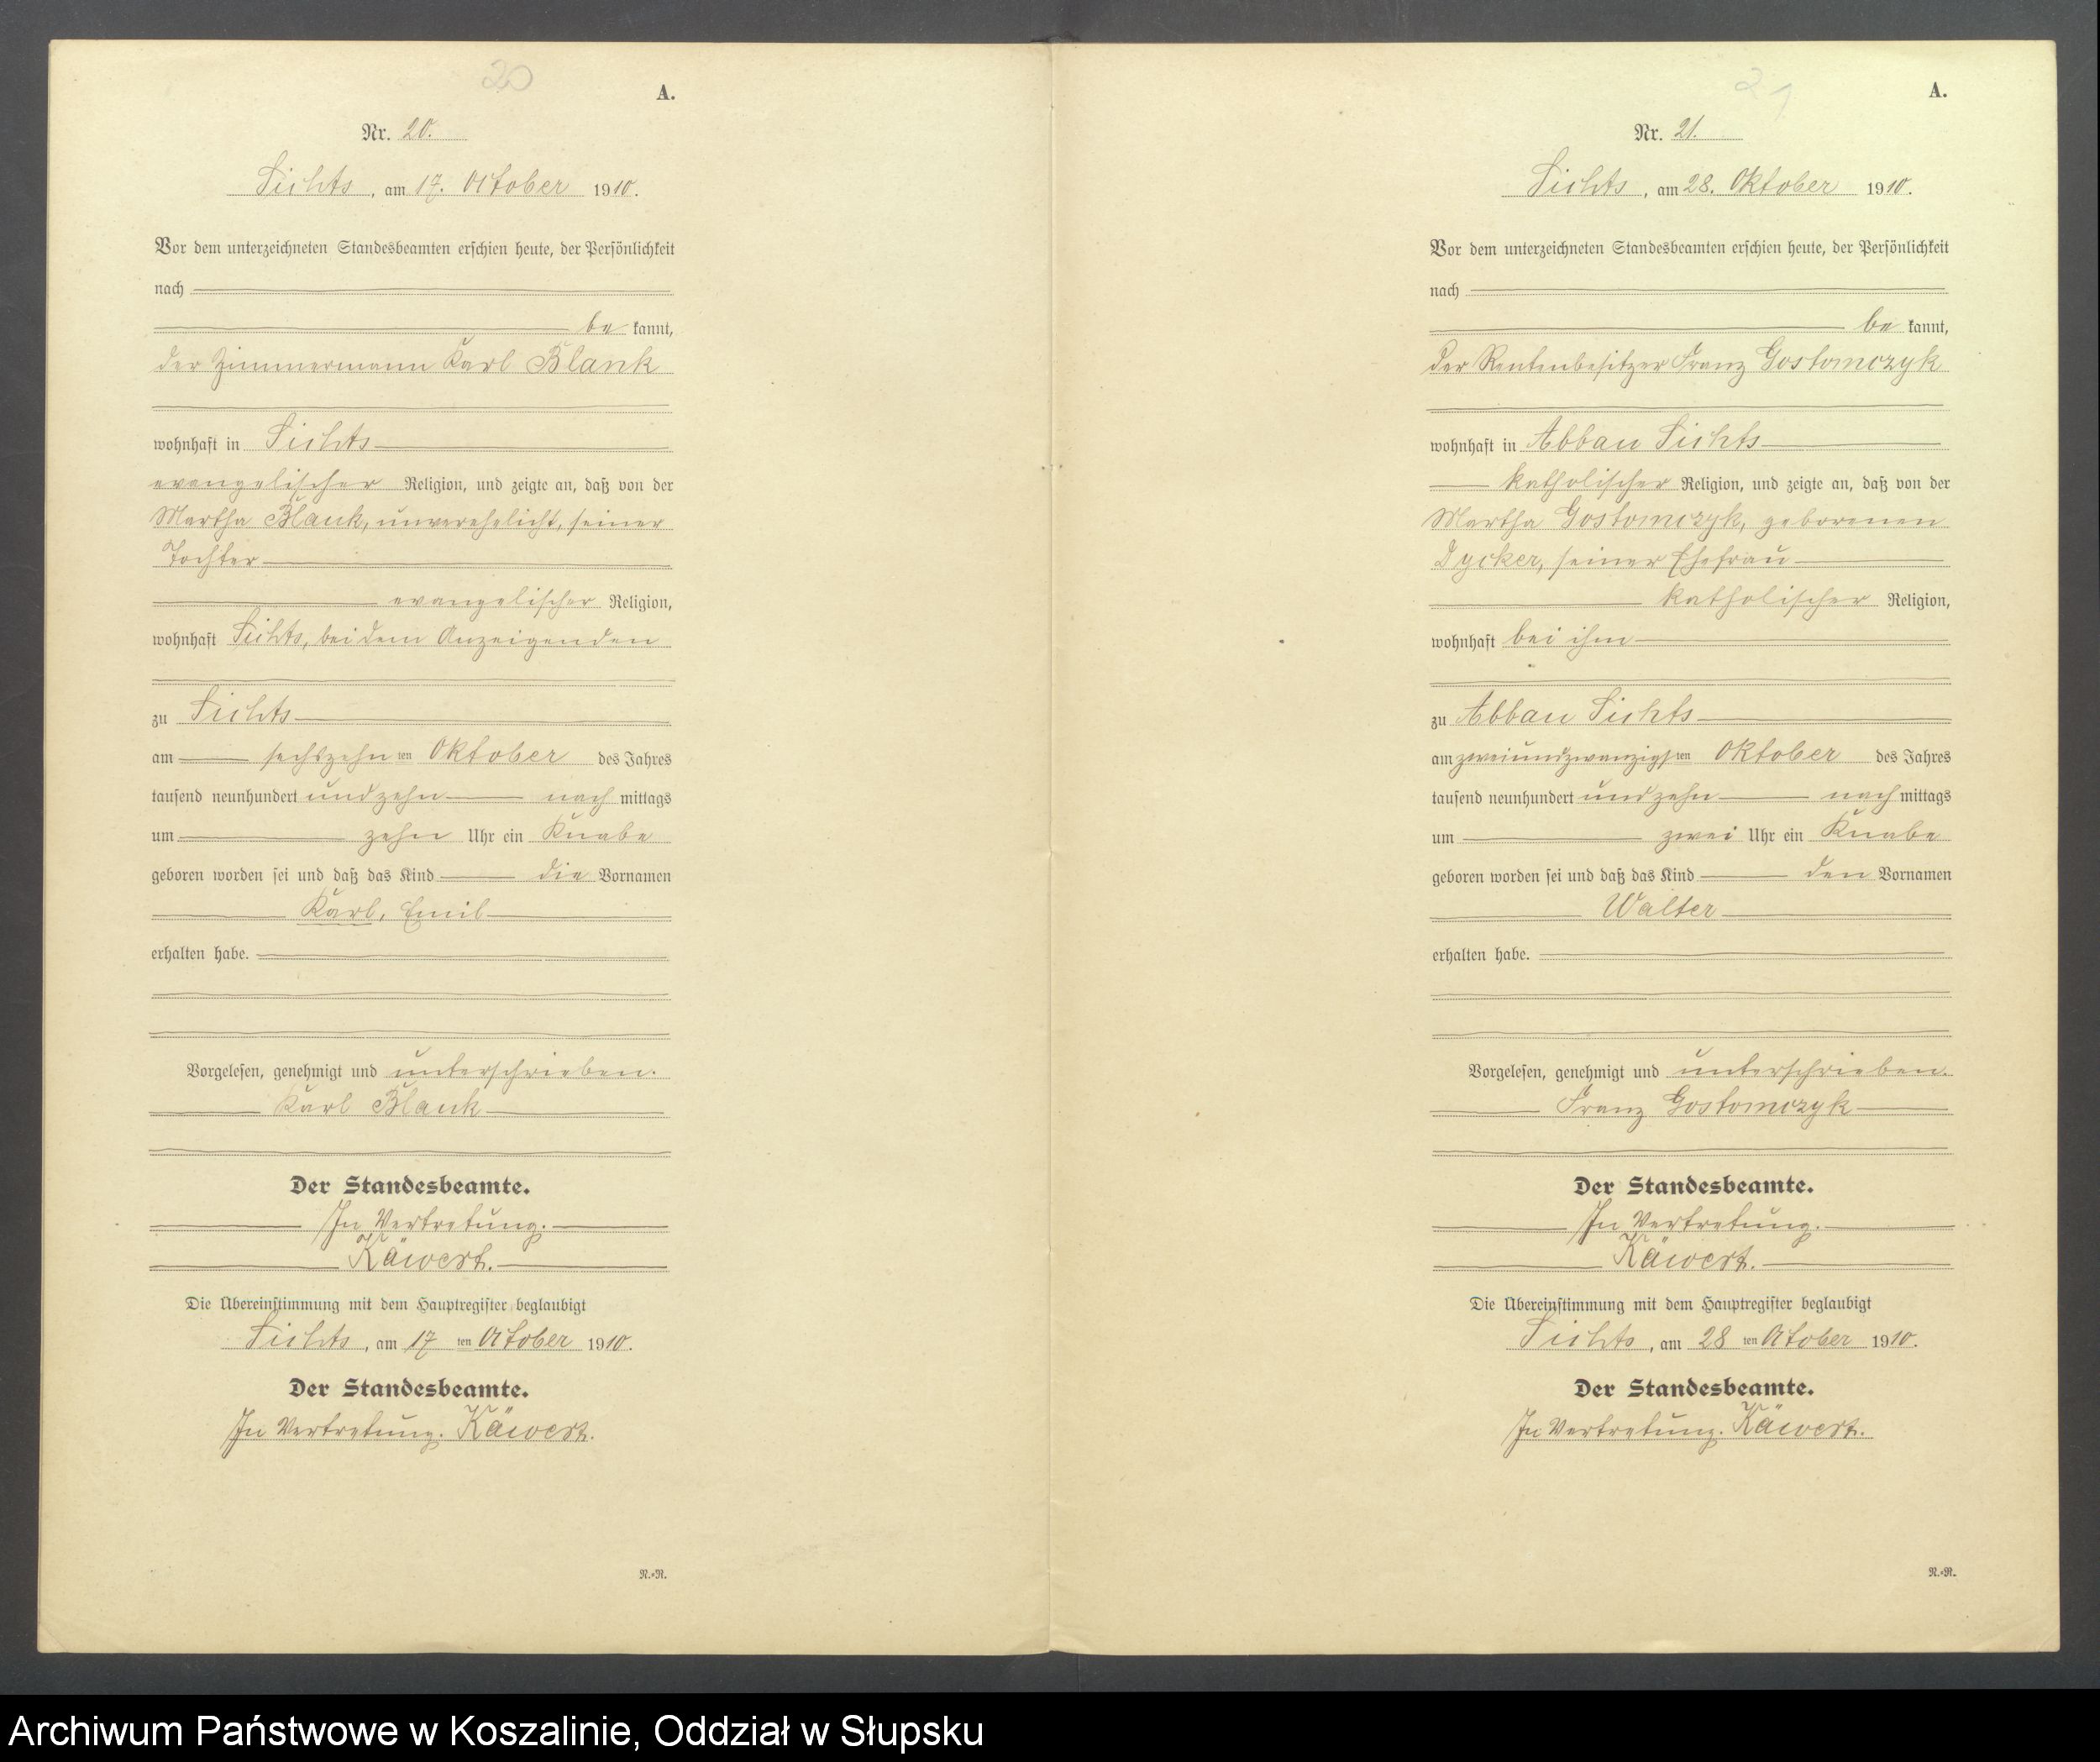 20
A.
Nr. 20.
Sichts, am 17. October 1910.
Vor dem unterzeichneten Standesbeamten erschien heute, der Persönlichkeit
nach
be kannt,
der Zimmermann Karl Blank
wohnhaft in Sichts
evangelischer Religion, und zeigte an, daß von der
Martha Blank, unverehelicht, seiner
Tochter
evangelischer Religion,
wohnhaft Sichts, bei dem Anzeigenden
zu Sichts
am sechszehn ten Oktober des Jahres
tausend neunhundert und zehn nach mittags
um zehn Uhr ein Knabe
geboren worden sei und daß das Kind die Vornamen
Karl, Emil
erhalten habe.
Vorgelesen, genehmigt und unterschrieben.
Karl Blank
Der Standesbeamte.
In Vertretung.
Käwert.
Die Übereinstimmung mit dem Hauptregister beglaubigt
Sichts, am 17 ten October 1910.
Der Standesbeamte.
In Vertretung. Käwert.
R.-R.
21
A.
Nr. 21.
Sichts, am 28. Oktober 1910.
Vor dem unterzeichneten Standesbeamten erschien heute, der Persönlichkeit
nach
be kannt,
der Rentenbesitzer Franz Gostomczyk
wohnhaft in Abbau Sichts
katholischer Religion, und zeigte an, daß von der
Martha Gostomczyk, geborenen
Dycker, seiner Ehefrau
katholischer Religion,
wohnhaft bei ihm
zu Abbau Sichts
am zweiundzwanzigsten Oktober des Jahres
tausend neunhundert und zehn nach mittags
um zwei Uhr ein Knabe
geboren worden sei und daß das Kind den Vornamen
Walter
erhalten habe.
Vorgelesen, genehmigt und unterschrieben.
Franz Gostomczyk
Der Standesbeamte.
In Vertretung.
Käwert.
Die Übereinstimmung mit dem Hauptregister beglaubigt
Sichts, am 28 ten October 1910.
Der Standesbeamte.
In Vertretung. Käwert.
R.-R.
Archiwum Państwowe w Koszalinie, Oddział w Słupsku